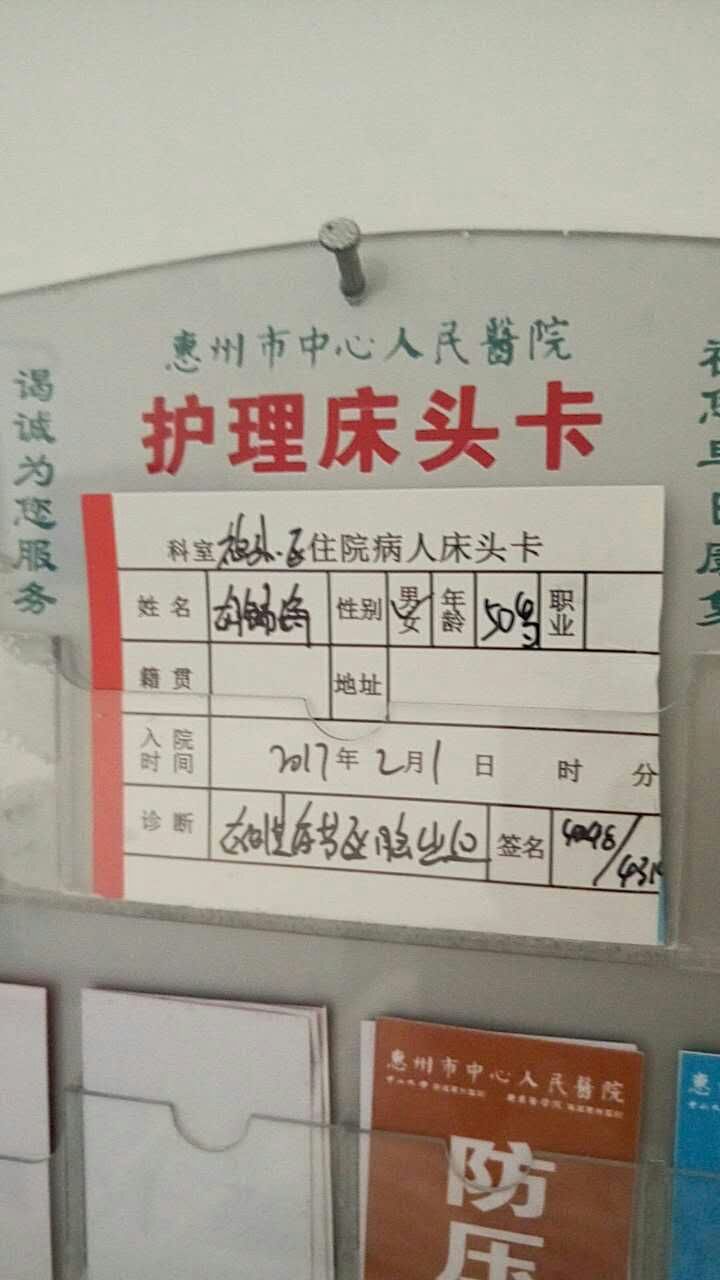 惠州市中心人民醫院
护理床头卡
竭诚为您服务
祝您早日康复
科室 住院病人床头卡
姓名 性别 男女 年龄 50岁 职业
籍贯 地址
入院时间 2017年2月1日 时 分
诊断 基底节区脑出血 签名
惠州市中心人民醫院
防压
惠